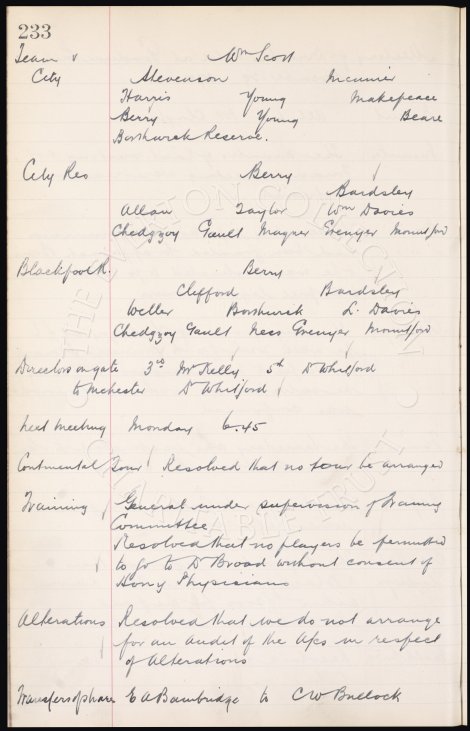 233
Team v Wm Scott
City Stevenson Meunier
Harris Young Makepeace
Berry Young Beare
Borthwick Reserve.
City Res Berry
Bardsley
Allan Taylor Wm Davies
Chedgzoy Gault Magner Grenyer Mountford
Blackpool h. Berry
Clifford Bardsley
Weller Borthwick L. Davies
Chedgzoy Gault Ness Grenyer Mountford
Directors on gate 3rd Mr Kelly 5th Dr Whitford
to Mchester Dr Whitford
Next Meeting Monday 6.45
Continental Tour Resolved that no tour be arranged
Training General under supervision of Training
Committee
Resolved that no players be permitted
to go to Dr Broad without consent of
Hony Physicians
Alterations Resolved that we do not arrange
for an audit of the A/cs in respect
of Alterations
Transfers of shares E A Bambridge to C W Bullock
THE EVERTON COLLECTION
CHARITABLE TRUST